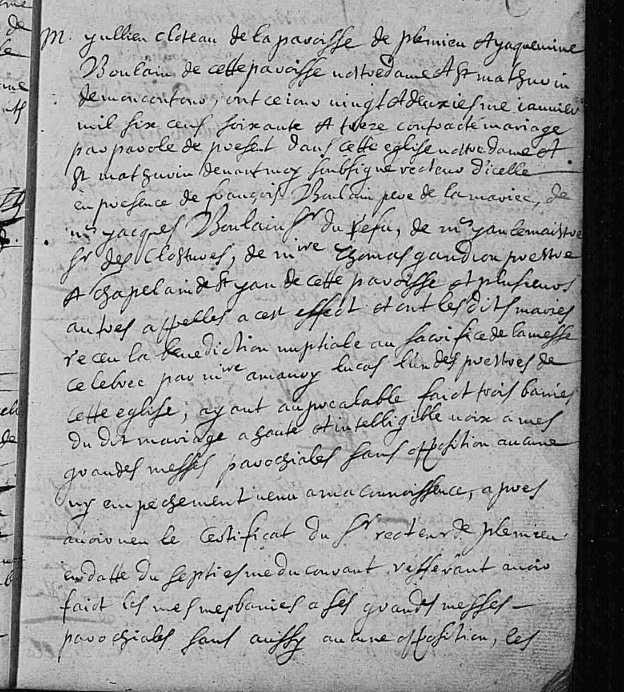 M. yullien cloteau de la paroisse de plemieu et yaquemine
Boulain de cette paroisse nostre dame et st mathurin
de moncontour, ont ce jour vingt et deuxiesme janvier
mil six cens soixante et treze contracté mariage
par parole de present dans cette eglise nostre dame et
st mathurin devant moy soubsigné recteur d'icelle
en presence de françois Boulain pere de la mariee, de
mre yacques Boulain sr du , de mre yan lemaistre
sr des clostures, de mire thomas gandion prestre
et chapelain de st yan de cette paroisse et plusieurs
autres appelles a cest effect et ont lesdits maries
receu la benediction nuptiale au sacrifice de la messe
celebree par mire amaury lucas l'un des prestres de
cette eglise, ayant au prealable faict trois banies
du dit mariage a haute et intelligible voix a mes
grandes messes parochiales sans opposition aucune
ny empechement venu a ma connoissence, apres
avoir veu le certificat du sr recteur de plemieu
en datte du septiesme du courant refferant avoir
faict les mesmes banies a ses grandes messes
parochiales sans aussy aucune opposition, les